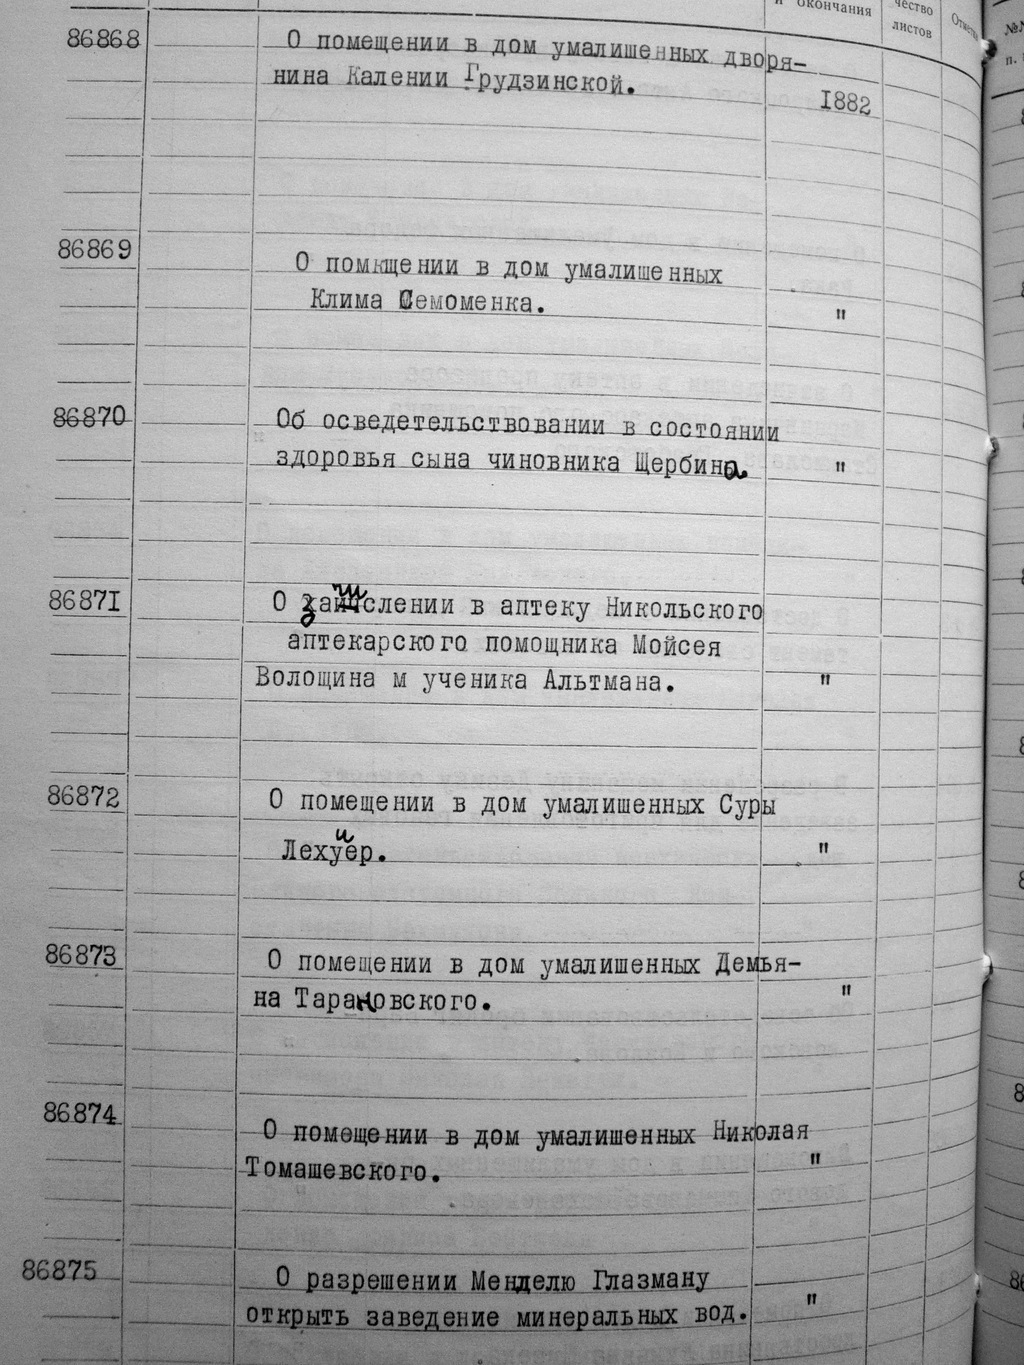 и окончания
чество
листов
Отметка
86868 О помещении в дом умалишенных дворя-
нина Калении Грудзинской.
1882
86869
О помещении в дом умалишенных
Клима Семоменка. "
86870 Об осведетельствовании в состоянии
здоровья сына чиновника Щербина. "
86871 О зачислении в аптеку Никольского
аптекарского помощника Мойсея
Волощина м ученика Альтмана. "
86872 О помещении в дом умалишенных Суры
Лехуиер. "
86873 О помещении в дом умалишенных Демья-
на Тарановского. "
86874
О помещении в дом умалишенных Николая
Томашевского. "
86875 О разрешении Менделю Глазману
открыть заведение минеральных вод. "